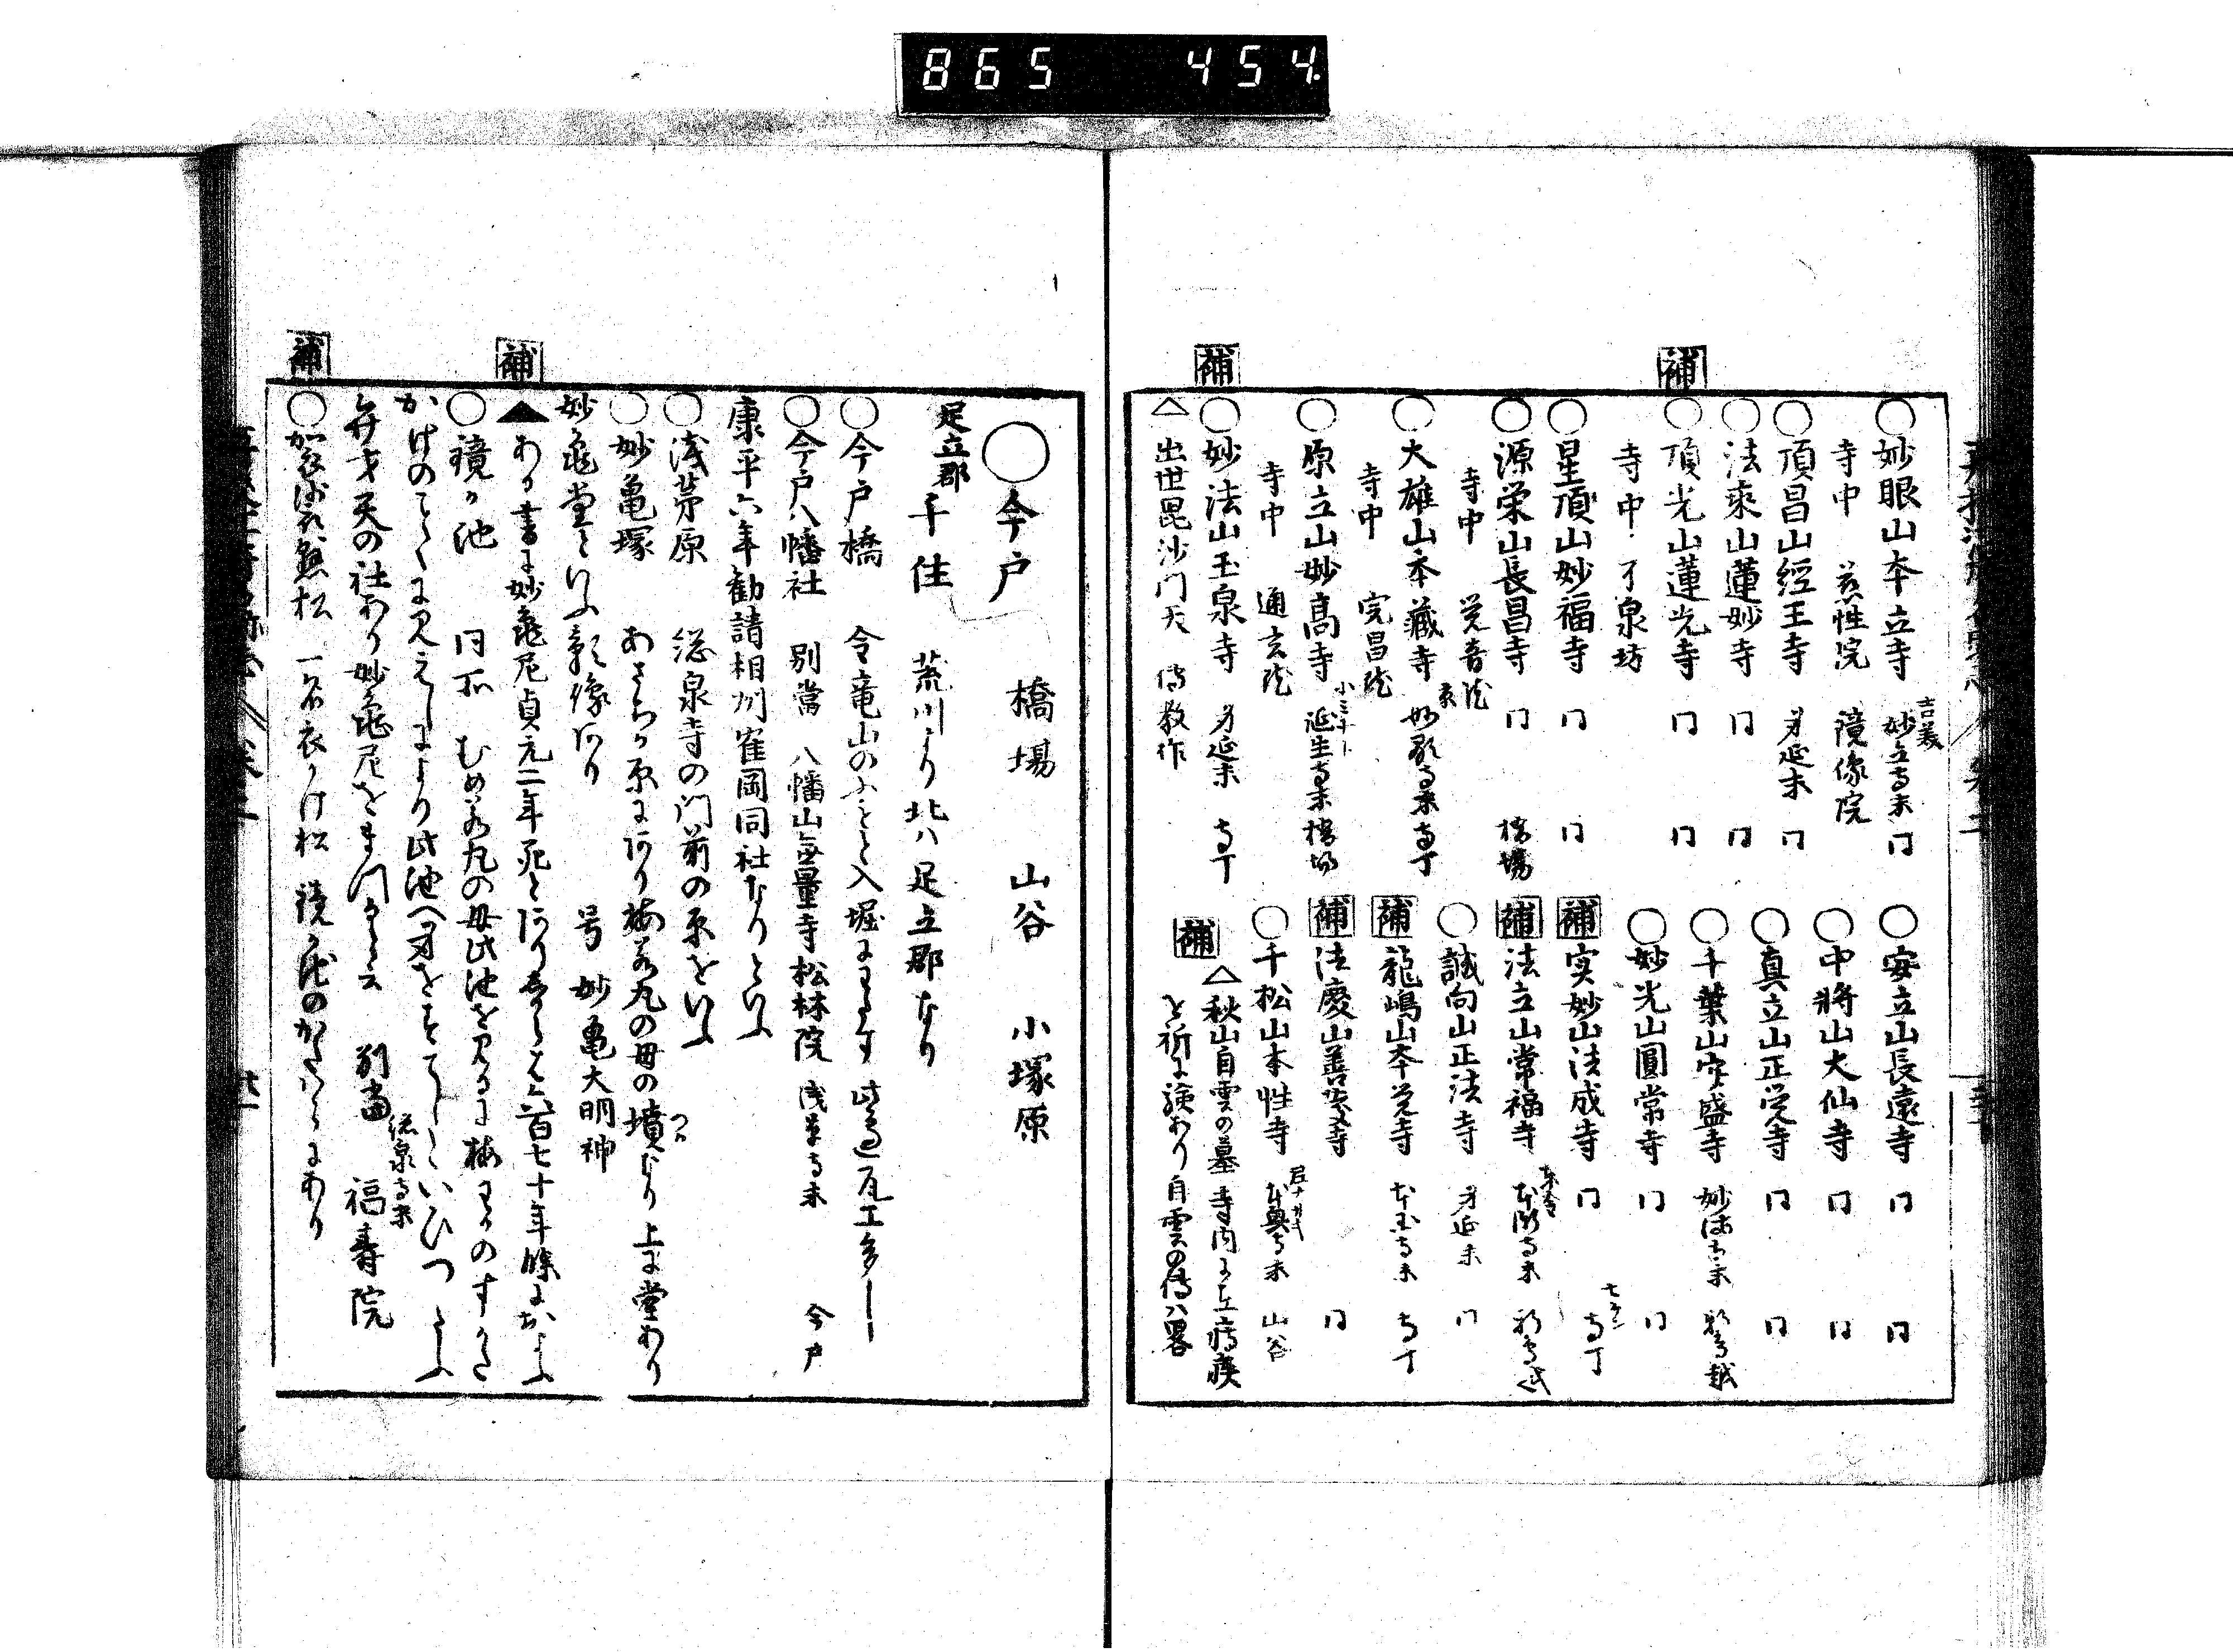 865 454
○妙眼山本立寺 吉美 妙立寺末 同
寺中 慈性院 境像院
○頂昌山経王寺 身延末 同
○法来山蓮妙寺 同 同
補 ○頂光山蓮光寺 同 同
寺中 了泉坊
○星頂山妙福寺 同 同
○源栄山長昌寺 同 橋場
寺中 覚音院
○大雄山本蔵寺 京 妙顕寺末 寺丁
寺中 完昌院
○原立山妙高寺 延生寺末 橋場
寺中 通玄院
補 ○妙法山玉泉寺 身延末 寺丁
△出世毘沙门天 傳教作
○安立山長遠寺 同 同
○中將山大仙寺 同 同
○真立山正覚寺 同 同
○千葉山安盛寺 妙法寺末
○妙光山圓常寺 同 同
補 実妙山法成寺 同 寺丁
補 法立山常福寺
○誠向山正法寺 身延末 同
補 龍嶋山本覚寺 寺丁
補 法慶山善慶寺 同
○千松山本性寺 本興寺末 山谷
補 △秋山自雲の墓 寺内に在 痔疾
を祈に験あり自雲の傳ハ畧
○今戸 橋場 山谷 小塚原
足立郡 千住 荒川より北ハ足立郡なり
○今戸橋 今竜山のふもと入堀にわたす 此辺瓦工多し
○今戸八幡社 別當 八幡山無量寺松林院 浅草寺末 今戸
康平六年勧請相州崔岡同社なりといふ
○浅茅原 総泉寺の门前の原をいふ
○妙亀塚 あさちか原にあり梅若丸の母の墳なり 上に堂あり
妙亀堂といふ影像あり 号 妙亀大明神
補 ▲ある書に妙亀尼貞元二年死とあり しからは六百七十年餘におよふ
○鏡か池 同所 むめ若丸の母此池を見るに梅わかのすかた
かけのことくに見えしにより此池へ身をすてしといひつたふ
弁才天の社あり妙亀尼をまつると云 別當 総泉寺末 福寿院
補 ○袈裟懸松 一名衣かけ松 鏡か池のかたはらにあり